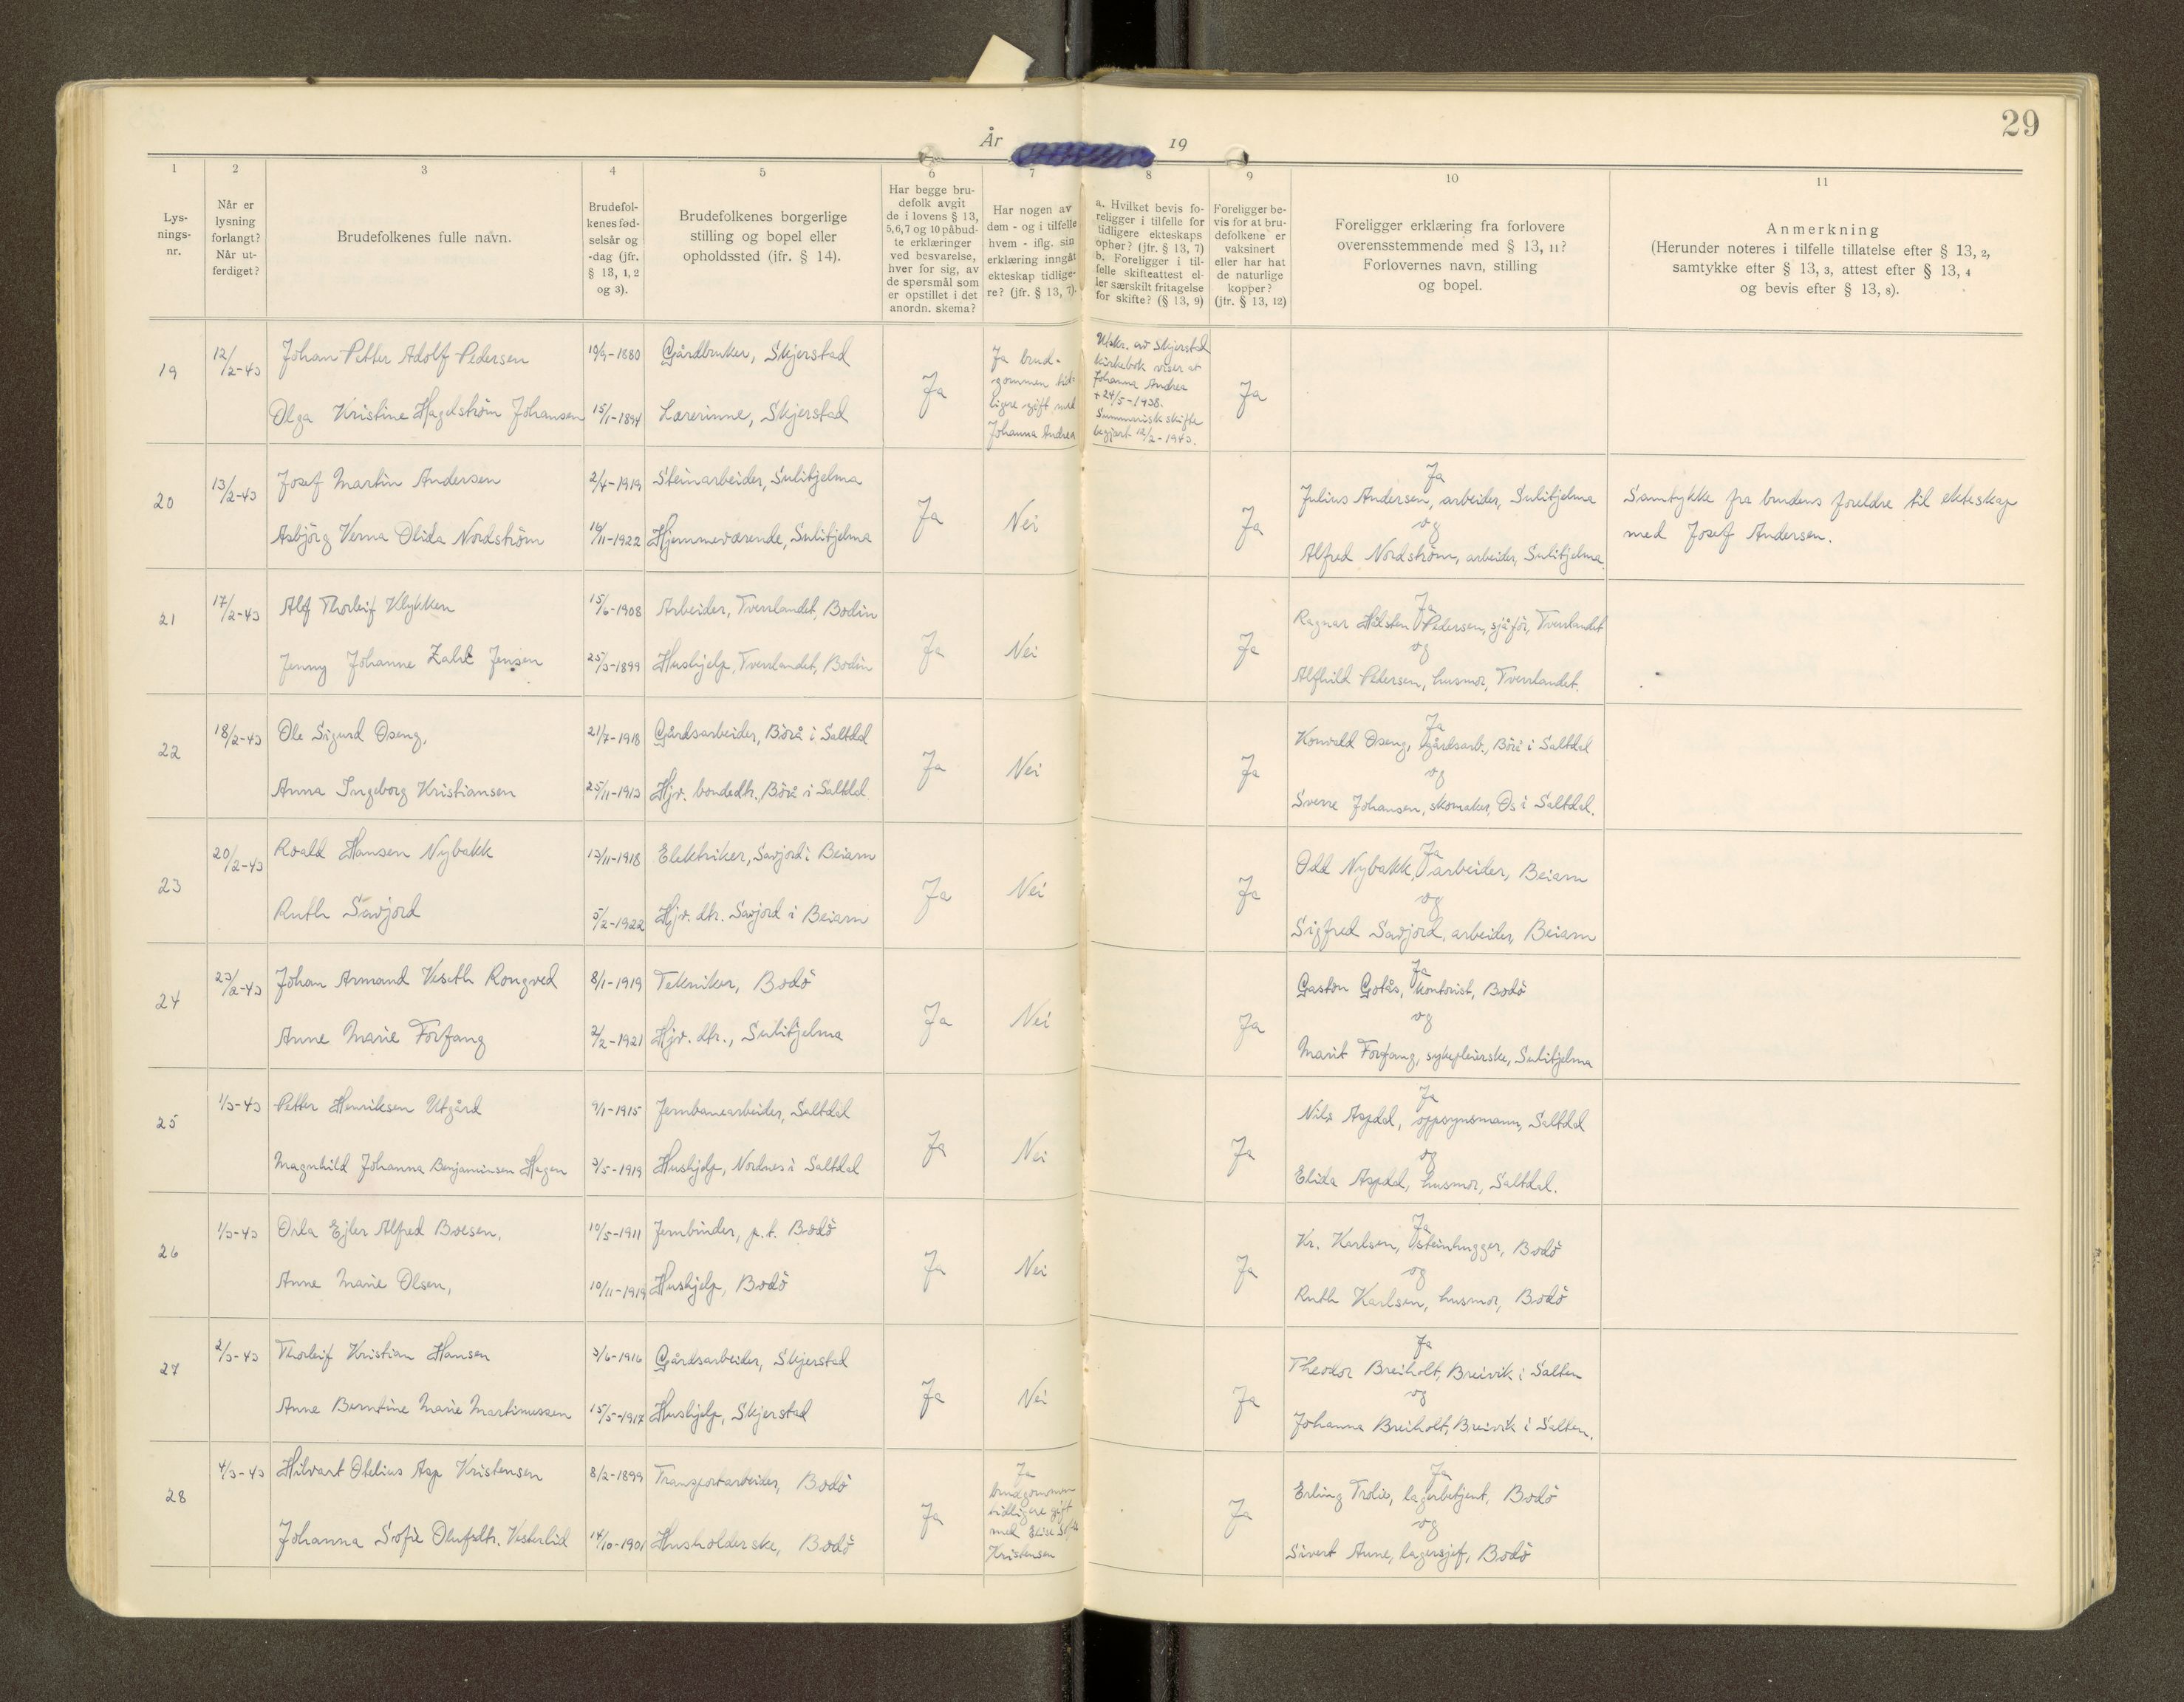 29
År 19
1 2 3 4 5 6 7 8 9 10 11
Lys-
nings-
nr.
Når er
lysning
forlangt?
Når ut-
ferdiget?
Brudefolkenes fulle navn.
Brudefol-
kenes fød-
selsår og
-dag (jfr.
§ 13, 1, 2
og 3).
Brudefolkenes borgerlige
stilling og bopel eller
opholdssted (jfr. § 14).
Har begge bru-
defolk avgit
de i lovens § 13,
5,6,7 og 10 påbud-
te erklæringer
ved besvarelse,
hver for sig, av
de spørsmål som
er opstillet i det
anordn. skema?
Har nogen av
dem - og i tilfelle
hvem - iflg. sin
erklæring inngåt
ekteskap tidlige-
re? (jfr. § 13, 7).
a. Hvilket bevis fo-
religger i tilfelle for
tidligere ekteskaps
ophør? (jfr. § 13, 7)
b. Foreligger i til-
felle skifteattest el-
ler særskilt fritagelse
for skifte? (§ 13, 9)
Foreligger be-
vis for at bru-
defolkene er
vaksinert
eller har hat
de naturlige
kopper?
(jfr. § 13, 12)
Foreligger erklæring fra forlovere
overensstemmende med § 13, 11?
Forlovernes navn, stilling
og bopel.
Anmerkning
(Herunder noteres i tilfelle tillatelse efter § 13, 2,
samtykke efter § 13, 3, attest efter § 13, 4
og bevis efter § 13, 8).
19
12/2-43
Johan Petter Adolf Pedersen
Olga Kristine Hagelström Johansen
19/9-1880
15/1-1894
Gårdbruker, Skjerstad
Lærerinne, Skjerstad
Ja
Ja brud-
gommen tid-
ligere gift med
Johanna Andrea
Utskr. av Skjerstad
kirkebok viser at
Johanna Andrea
+ 24/5-1938.
Summarisk skifte
begjært 12/2-1943.
Ja
20
13/2-43
Josef Martin Andersen
Asbjörg Verna Olida Nordström
2/4-1919
16/11-1922
Steinarbeider, Sulitjelma
Hjemmeværende, Sulitjelma
Ja
Nei
Ja
Ja
Julius Andersen, arbeider, Sulitjelma
og
Alfred Nordström, arbeider, Sulitjelma.
Samtykke fra brudens foreldre til ekteskap
med Josef Andersen.
21
17/2-43
Alf Thorleif Klykken
Jenny Johanne Zahl Jensen
15/6-1908
25/3-1899
Arbeider, Tverrlandet, Bodin
Hushjelp, Tverrlandet, Bodin
Ja
Nei
Ja
Ja
Ragnar Halsten Pedersen, sjåför, Tverrlandet
og
Alfhild Pedersen, husmor, Tverrlandet.
22
18/2-43
Ole Sigurd Oseng,
Anna Ingeborg Kristiansen
21/7-1918
25/11-1913
Gårdsarbeider, Börå i Saltdal
Hjv. bondedtr. Börå i Saltdal
Ja
Nei
Ja
Ja
Konrald Oseng, gårdsarb., Börå i Saltdal
og
Sverre Johansen, skomaker, Os i Saltdal.
23
20/2-43
Roald Hansen Nybakk
Ruth Savjord
13/11-1918
5/2-1922
Elektriker, Savjord i Beiarn
Hjv. dtr. Savjord i Beiarn
Ja
Nei
Ja
Ja
Odd Nybakk, arbeider, Beiarn
og
Sigfred Savjord, arbeider, Beiarn
24
23/2-43
Johan Armand Veseth Rongved
Anne Marie Forfang
8/1-1919
2/2-1921
Tekniker, Bodö
Hjv. dtr., Sulitjelma
Ja
Nei
Ja
Ja
Gaston Gotås, kontorist, Bodö
og
Marit Forfang, sykepleierske, Sulitjelma
25
1/3-43
Petter Henriksen Utgård
Magnhild Johanna Benjaminsen Hagen
9/1-1915
3/5-1919
Jernbanearbeider, Saltdal
Hushjelp, Nordnes i Saltdal
Ja
Nei
Ja
Ja
Nils Aspdal, oppsynsmann, Saltdal
og
Elida Aspdal, husmor, Saltdal.
26
1/3-43
Orla Ejler Alfred Boesen,
Anne Marie Olsen,
10/5-1911
10/11-1919
Jernbinder, p.t. Bodö
Hushjelp, Bodö
Ja
Nei
Ja
Ja
Kr. Karlsen, steinhugger, Bodö
og
Ruth Karlsen, husmor, Bodö
27
2/3-43
Thorleif Kristian Hansen
Anne Berntine Marie Martinussen
3/6-1916
15/5-1917
Gårdsarbeider, Skjerstad
Hushjelp, Skjerstad
Ja
Nei
Ja
Ja
Theodor Breiholt, Breivik i Salten
og
Johanna Breiholt, Breivik i Salten.
28
4/3-43
Hilvart Otelius Asp Kristensen
Johanna Sofie Olufsdtr. Vesterlid
8/2-1899
14/10-1901
Transportarbeider, Bodö
Husholderske, Bodö
Ja
Ja
brudgommen
tidligere gift
med Elise Sofie
Kristensen
Ja
Ja
Erling Trolie, lagerbetjent, Bodö
og
Sivert Aune, lagersjef, Bodö